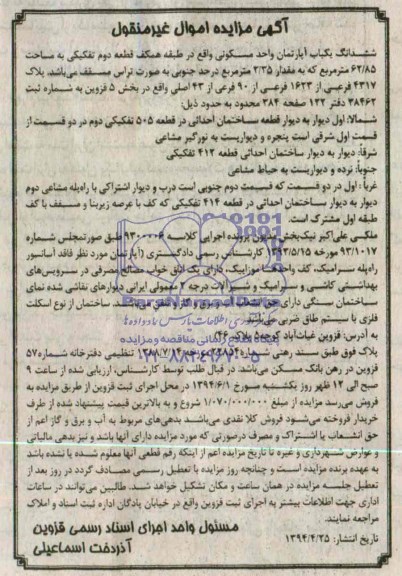 آگهی مزایده اموال غیرمنقول
ششدانگ یکباب آپارتمان واحد مسکونی واقع در طبقه همکف قطعه دوم تفکیکی به مساحت
۶۲/۸۵ مترمربع که به مقدار ۲/۲۵ مترمربع درحد جنوبی به صورت تراس مسقف می‌باشد. پلاک
۴۳۱۷ فرعی از ۱۶۲۳ فرعی از ۹۰ فرعی از ۴۳ اصلی واقع در بخش ۵ قزوین به شماره ثبت
۳۸۴۶۲ دفتر ۱۲۲ صفحه ۳۸۴ محدود به حدود ذیل:
شمالا: اول دیوار به دیوار قطعه ساختمان احداثی در قطعه ۵۰۵ تفکیکی دوم در دو قسمت از
قسمت اول شرقی است پنجره و دیواریست به نورگیر مشاعی
شرقاً: دیوار به دیوار ساختمان احداثی قطعه ۴۱۲ تفکیکی
جنوباً: نرده و دیواریست به حیاط مشاعی
غرباً: اول در دو قسمت که قسمت دوم جنوبی است درب و دیوار اشتراکی با راه‌پله مشاعی دوم
دیوار به دیوار ساختمان احداثی در قطعه ۴۱۴ تفکیکی که کف با عرصه زیربنا و سقف با کف
طبقه اول مشترک است.
ملکی علی‌اکبر نیک‌بخش مدیون پرونده اجرایی کلاسه طبق صورتمجلس شماره
۹۳/۱۰۱۷ مورخه ۱۳۹۳/۵/۱۵ کارشناس رسمی دادگستری (آپارتمان مورد نظر فاقد آسانسور
راه‌پله سرامیک، کف واحدها موزاییک، دارای یک اتاق خواب مصالح مصرفی در سرویس‌های
بهداشتی کاشی و سرامیک و شیرآلات درجه ۲ معمولی ایرانی دیوارهای نقاشی شده نمای
ساختمان سنگی دارای ساختمان از نوع اسکلت
فلزی با سیستم طاق ضربی می‌باشد
به آدرس: قزوین غیاث‌آباد پلاک ۴۶
پلاک فوق طبق سند رهنی شماره تنظیمی دفترخانه شماره ۵۷
قزوین در رهن بانک مسکن می‌باشد. در قبال طلب توسط کارشناس، ارزیابی شده از ساعت ۹
صبح الی ۱۲ ظهر روز یکشنبه مورخ ۱۳۹۴/۶/۱ در محل اجرای ثبت قزوین از طریق مزایده به
فروش می‌رسد مزایده از مبلغ ۱/۰۷۰/۰۰۰/۰۰۰ شروع و به بالاترین قیمت پیشنهاد شده از طرف
خریدار فروخته می‌شود فروش کلا نقدی می‌باشد بدهی‌های مربوط به آب و برق و گاز اعم از
حق انشعاب یا اشتراک و مصرف درصورتی که مورد مزایده دارای آنها باشد و نیز بدهی مالیاتی
و عوارض شهرداری و غیره تا تاریخ مزایده اعم از اینکه رقم قطعی آنها معلوم شده یا نشده باشد
به عهده برنده مزایده است و چنانچه روز مزایده با تعطیل رسمی مصادف گردد در روز بعد از
تعطیل جلسه مزایده در همان ساعت و مکان تشکیل خواهد شد. طالبین می‌توانند در ساعات
اداری جهت اطلاعات بیشتر به اجرای ثبت قزوین واقع در خیابان پادگان اداره ثبت اسناد و املاک
مراجعه نمایند.
مسئول واحد اجرای اسناد رسمی قزوین
تاریخ انتشار: ۱۳۹۴/۴/۲۵
آذردخت اسماعیلی